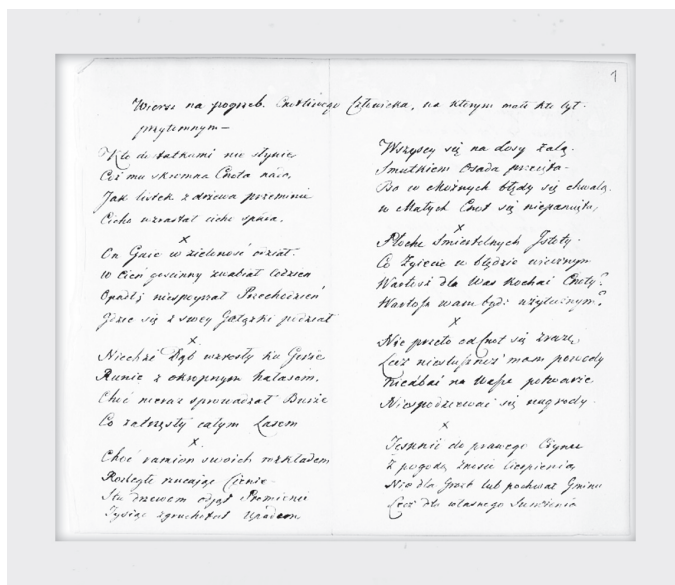 1
Wiersz na pogrzeb. Cnotliwego Człowieka, na którym mało kto był
przytomnym—
Kto dostatkami nie słynie
Coż mu skromna Cnota nada,
Jak listek z drzewa przeminie
Cicho wzrastał cicho spada.
x
On Gaie w zieloność odział.
w Cień gościnny zwabiał
Opadł; niespytał Przechodzień
Gdzie się z swey Gałązki podział
x
Niechże Dąb wzrosły ku Gorze
Runie z okropnym hałasem,
Choć nieraz sprowadzał Burze
Co zatrzęsły całym Lasem
x
Choć ramion swoich rozkładem
Rozległe rzucając Cienie
Stu drzewom odjął Promienie
Tysiąc zgruchotał Upadem
Wszyscy się na losy żalą.
Smutkiem Osada przeięta—
Bo w możnych błędy się chwalą.
w Małych Cnot się niepamięta,
x
Płoche Smiertelnych Istoty.
Co Żyjecie w błędzie wiecznym
Wartoż dla Was kochać Cnoty?
Wartoż wam bydź użytecznym?
x
Nie przeto od Cnot się zrażę
Lecz niesłuszność mam powody
Niedbać na Wasze potwarze
Niespodziewać się nagrody.
x
Tęsknić do prawego Czynu
Z pogodą znosić Cierpienia
Nie dla Gróźb lub pochwał Gminu
Lecz dla własnego Sumienia